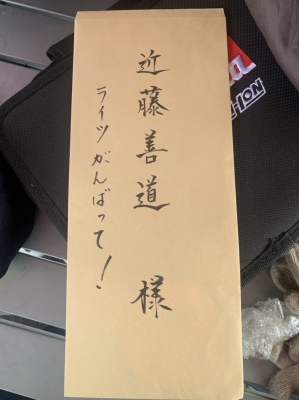 近藤善道 様
ライツがんばって！
LI-ION